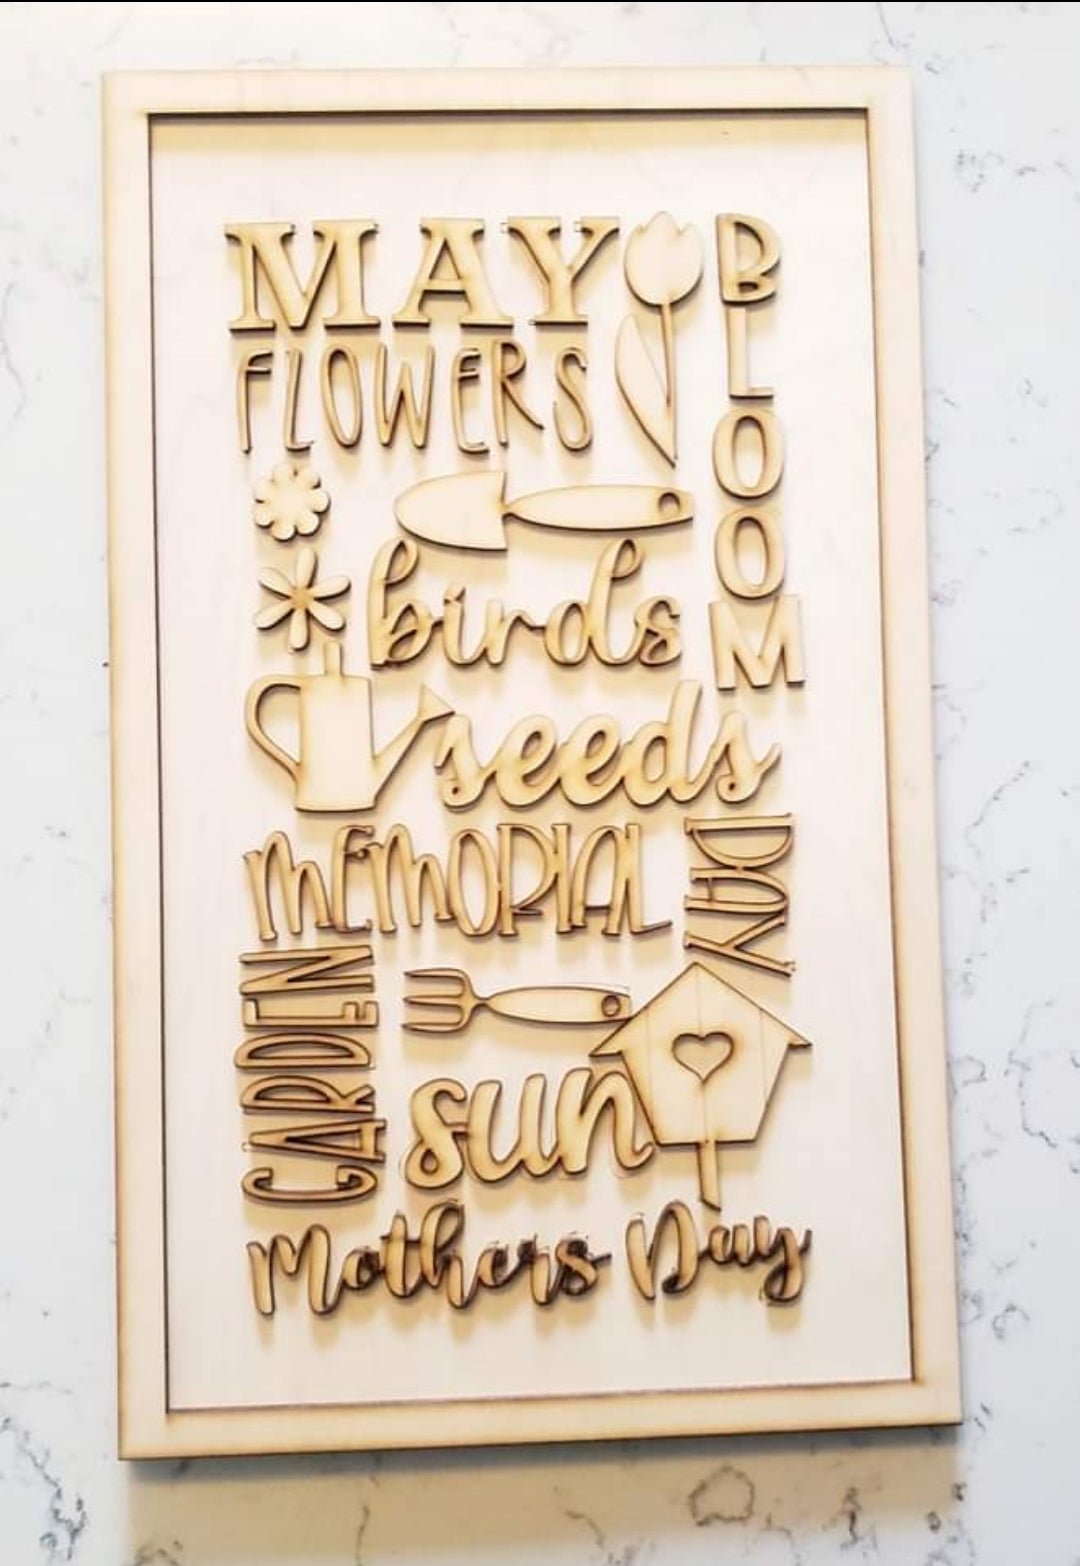 MAY
FLOWERS
BLOOM
birds
seeds
MEMORIAL
DAY
GARDEN
sun
Mothers Day